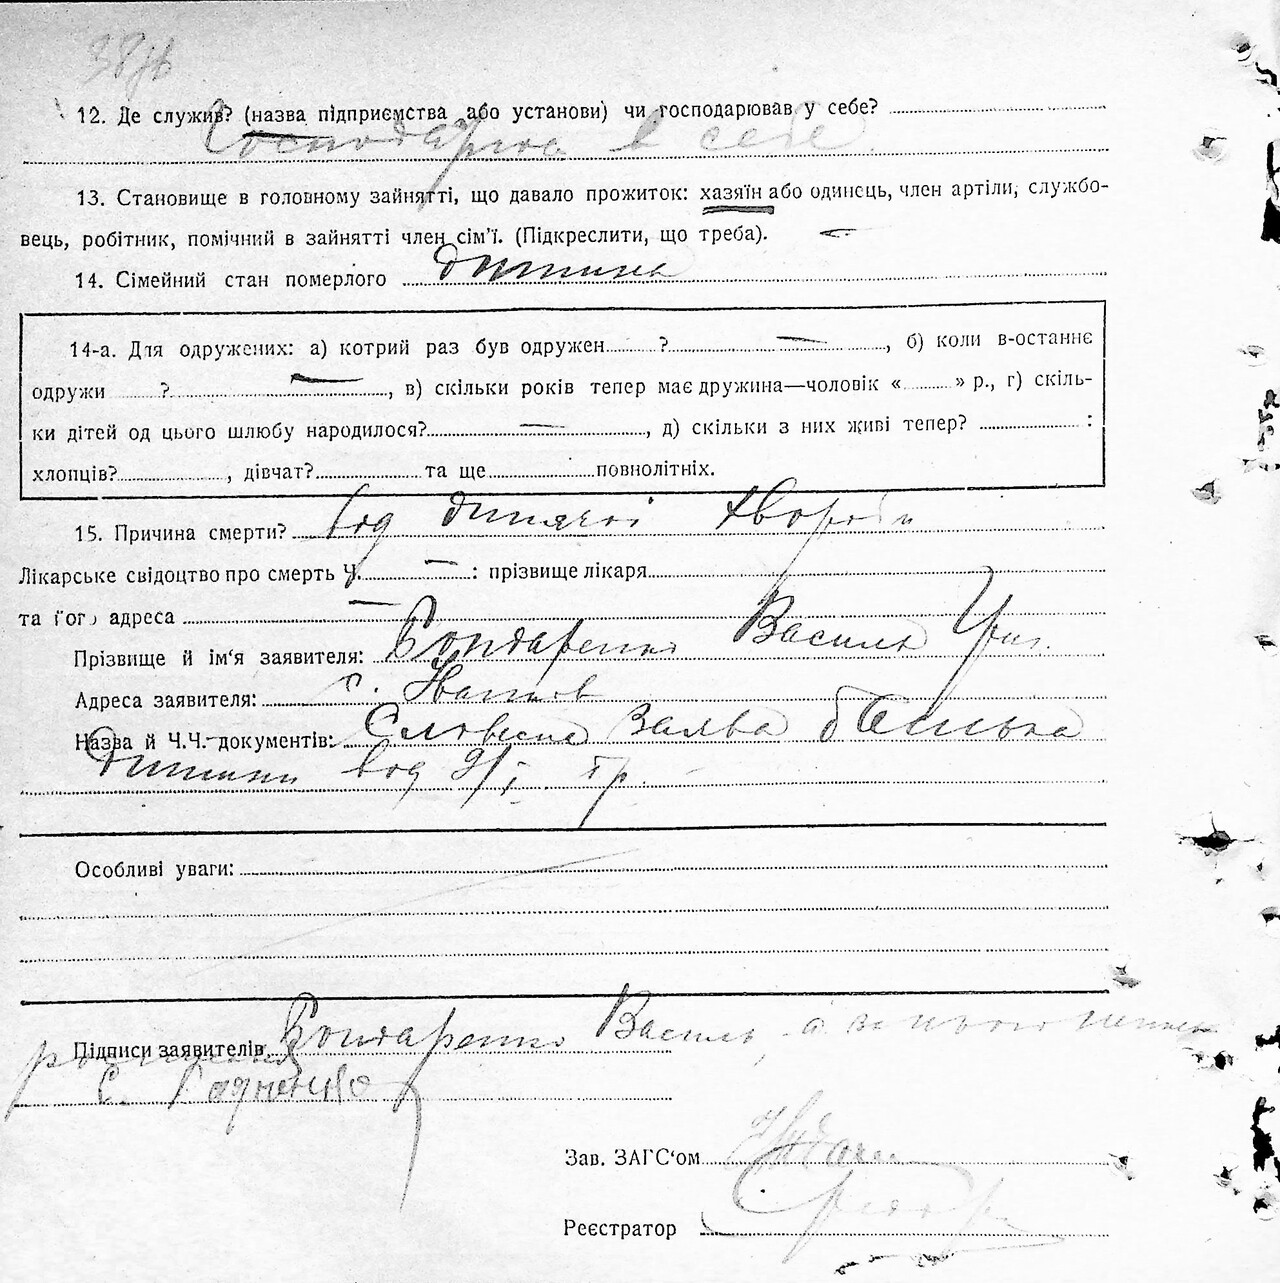 12. Де служив? (назва підприємства або установи) чи господарював у себе?
Господарюв в себе
13. Становище в головному зайнятті, що давало прожиток: хазяїн або одинець, член артілі, службо-
вець, робітник, помічний в зайнятті член сім'ї. (Підкреслити, що треба). —
14. Сімейний стан померлого дитина
14-а. Для одружених: а) котрий раз був одружен ? —, б) коли в-останнє
одружи ? —, в) скільки років тепер має дружина—чоловік « » р., г) скіль-
ки дітей од цього шлюбу народилося? —, д) скільки з них живі тепер? :
хлопців? , дівчат? та ще повнолітніх.
15. Причина смерти? Від дитячої хвороби
Лікарське свідоцтво про смерть Ч. — : прізвище лікаря
та його адреса —
Прізвище й ім'я заявителя: Бондаренко Василь
Адреса заявителя: с.
Назва й Ч.Ч. документів: Словесна заява батька
дитини від
Особливі уваги:
Підписи заявителів Бондаренко Василь, а за нього
С.
Зав. ЗАГС'ом
Реєстратор